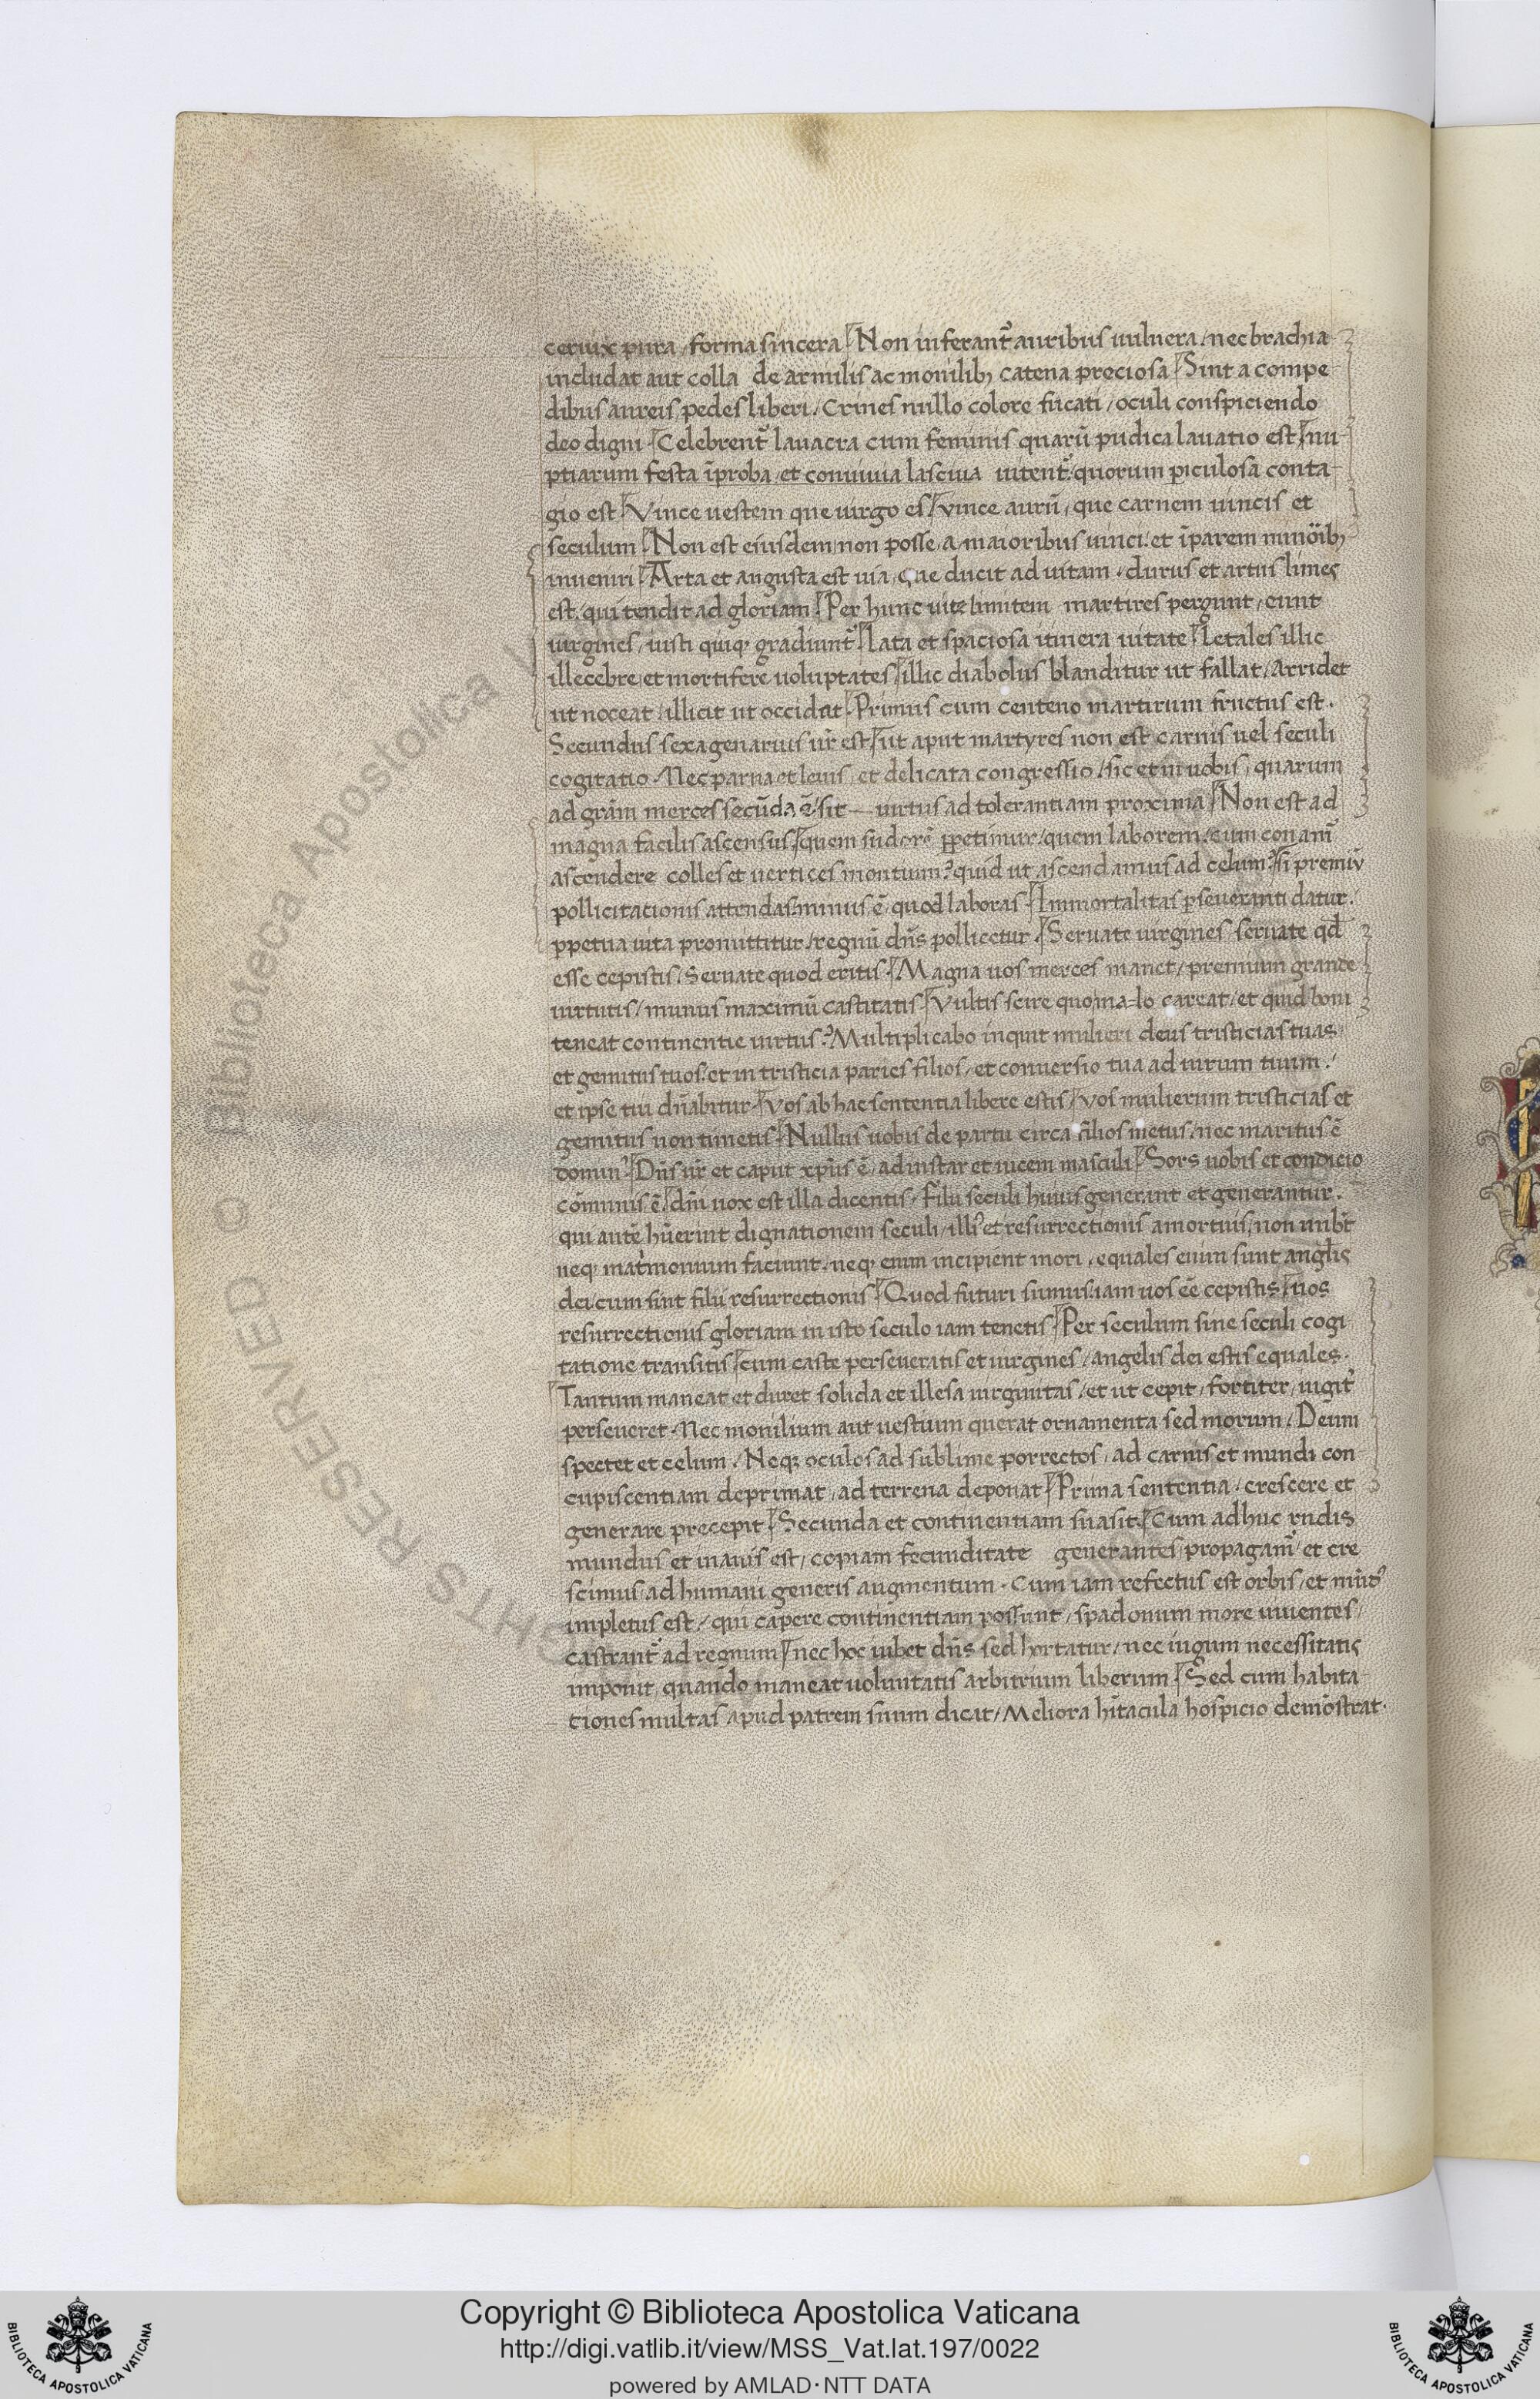 ceruix pura / forma sincera / Non inferant᷑ auribus uulnera / nec brachia
includat aut colla de armilis ac monilibꝫ catena preciosa / Sint a compe
dibus aureis pedes liberi / Crines nullo colore fucati / oculi conspiciendo
deo digni / Celebrent᷑ lauacra cum feminis quarū pudica lauatio est / nu
ptiarum festa īproba / et conuiuia lasciua uitent᷑ / quorum ꝑiculosa conta
gio est / Vince uestem que uirgo es / vince aurū / que carnem uincis et
seculum / Non est eiusdem non posse a maioribus uinci / et īparem minoribꝫ
inueniri / Arta et angusta est uia / que ducit ad uitam / durus et artus limes
est / qui tendit ad gloriam / Per hunc uite limitem martires pergunt / eunt
uirgines / iusti quiqꝫ gradiunt᷑ / Lata et spaciosa itinera uitate / Letales illic
illecebre et mortifere uoluptates / illic diabolus blanditur ut fallat / Arridet
ut noceat / illicit ut occidat / Primus cum centeno martirum fructus est .
Secundus sexagenarius ur̄ est / ut aput martyres non est carnis uel seculi
cogitatio . Nec parua et leuis / et delicata congressio / sic et in uobis / quarum
ad grām merces secūda ē / sit uirtus ad tolerantiam proxima / Non est ad
magna facilis ascensus / quem sudorē ꝑpetimur / quem laborem / cum conam᷑
ascendere colles et uertices montium ? quid ut ascendamus ad celum ? si premiū
pollicitationis attendas / minus ē / quod laboras / Immortalitas ꝑseueranti datur /
ꝑpetua uita promittitur / regnū dn̄s pollicetur / Seruate uirgines seruate qd̄
esse cepistis / Seruate quod eritis / Magna uos merces manet / premium grande
uirtutis / munus maximū castitatis / Vultis scire quo malo careat / et quid boni
teneat continentie uirtus ? Multiplicabo inquit mulieri deus tristicias tuas
et gemitus tuos / et in tristicia paries filios / et conuersio tua ad uirum tuum /
et ipse tui dn̄abitur / Vos ab hac sententia libere estis / vos mulierum tristicias et
gemitus non timetis / Nullus uobis de partu circa filios metus / nec maritus ē
domin᷒ / Dn̄s ur̄ et caput xp̄us ē / ad instar et uicem masculi / Sors uobis et condicio
cōmunis ē / dn̄i uox est illa dicentis / Filii seculi huius generant et generantur .
qui autē hūerint dignationem seculi / illi᷒ et resurrectionis a mortuis / non nubt̄
neqꝫ mat'monium faciunt / neqꝫ enim incipient mori / equales enim sunt angl̄is
dei cum sint filii resurrectionis / Quod futuri sumus / iam uos ēē cepistis / uos
resurrectionis gloriam in isto seculo iam tenetis / Per seculum sine seculi cogi
tatione transitis / cum caste perseueratis et uirgines / angelis dei estis equales .
Tantum maneat et duret solida et illesa uirginitas / et ut cepit / fortiter / iugit᷑
perseueret . Nec monilium aut uestium querat ornamenta sed morum / Deum
spectet et celum / Neqꝫ oculos ad sublime porrectos / ad carnis et mundi con
cupiscentiam deprimat / ad terrena deponat / Prima sententia / crescere et
generare precepit / Secunda et continentiam suasit / Cum adhuc rudis
mundus et inanis est / copiam fecunditate generantes propagam᷑ / et cre
scimus ad humani generis augmentum . Cum iam refectus est orbis / et mūd᷒
impletus est / qui capere continentiam possunt / spadonum more uiuentes /
castrant᷑ ad regnum / nec hoc iubet dn̄s sed hortatur / nec iugum necessitatis
imponit / quando maneat uoluntatis arbitrium liberum / Sed cum habita
tiones multas apud patrem suum dicat / Meliora hītacula hospicio demōstrat .
Copyright © Biblioteca Apostolica Vaticana
http://digi.vatlib.it/view/MSS_Vat.lat.197/0022
powered by AMLAD·NTT DATA
BIBLIOTECA APOSTOLICA VATICANA
BIBLIOTECA APOSTOLICA VATICANA